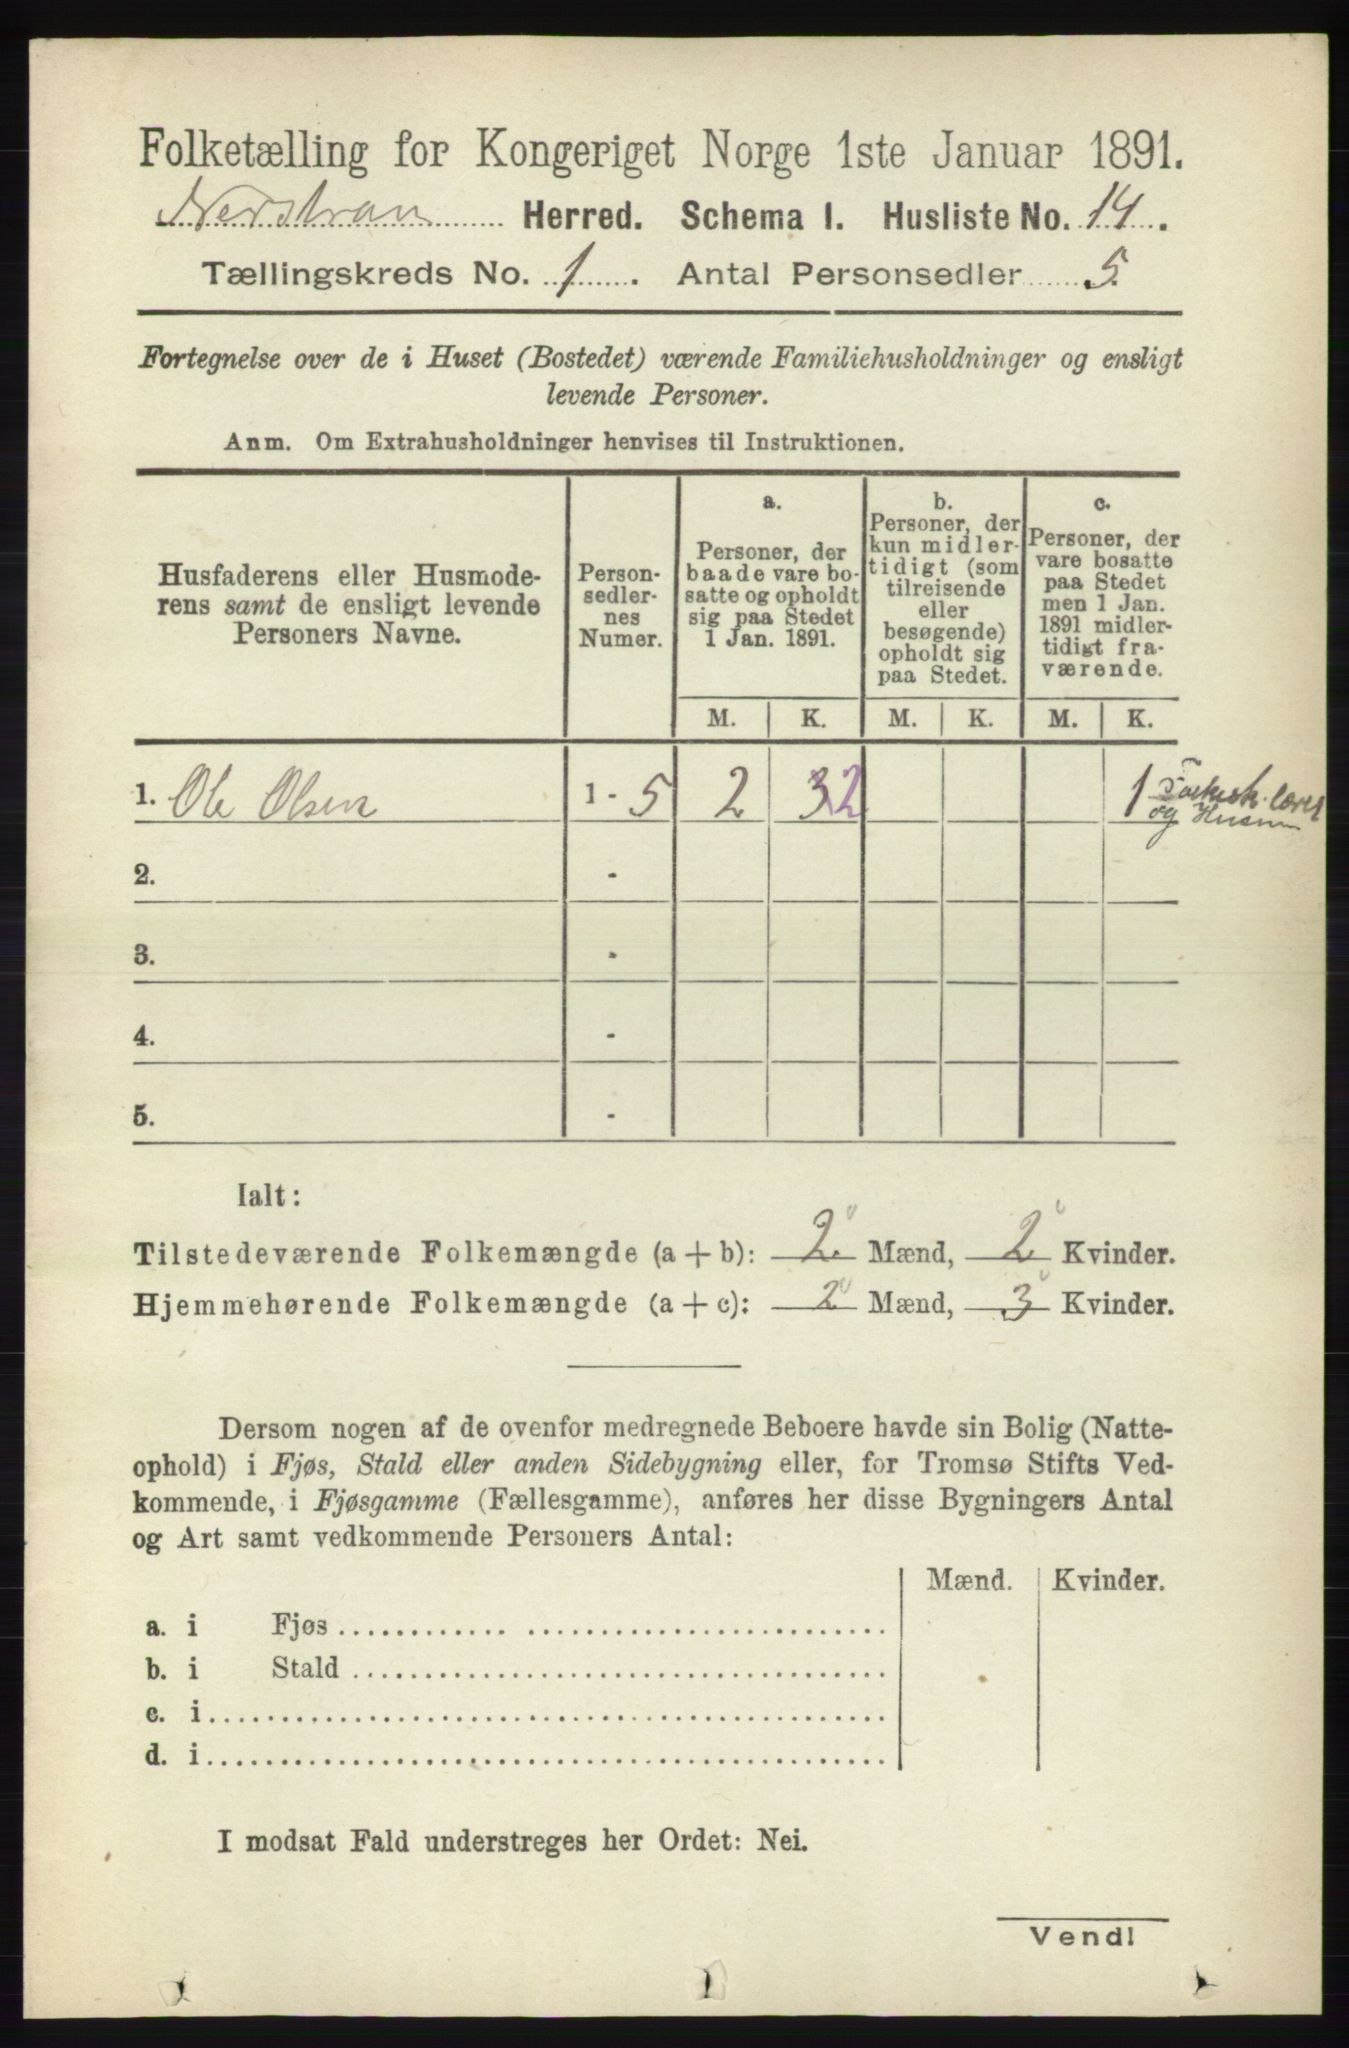 Folketælling for Kongeriget Norge 1ste Januar 1891.
Nerstran Herred. Schema I. Husliste No. 14.
Tællingskreds No. 1. Antal Personsedler 5.
Fortegnelse over de i Huset (Bostedet) værende Familiehusholdninger og ensligt
levende Personer.
Anm. Om Extrahusholdninger henvises til Instruktionen.
Husfaderens eller Husmode-
rens samt de ensligt levende
Personers Navne.
Person-
sedler-
nes
Numer.
a.
Personer, der
baade vare bo-
satte og opholdt
sig paa Stedet
1 Jan. 1891.
b.
Personer, der
kun midler-
tidigt (som
tilreisende
eller
besøgende)
opholdt sig
paa Stedet.
c.
Personer, der
vare bosatte
paa Stedet
men 1 Jan.
1891 midler-
tidigt fra-
værende.
M. K. M. K. M. K.
1. Ole Olsen 1 - 5 2 32 1
og
2. -
3. -
4. -
5. -
Ialt:
Tilstedeværende Folkemængde (a + b): 2 Mænd, 2 Kvinder.
Hjemmehørende Folkemængde (a + c): 2 Mænd, 3 Kvinder.
Dersom nogen af de ovenfor medregnede Beboere havde sin Bolig (Natte-
ophold) i Fjøs, Stald eller anden Sidebygning eller, for Tromsø Stifts Ved-
kommende, i Fjøsgamme (Fællesgamme), anføres her disse Bygningers Antal
og Art samt vedkommende Personers Antal:
Mænd. Kvinder.
a. i Fjøs
b. i Stald
c. i
d. i
I modsat Fald understreges her Ordet: Nei.
Vend!